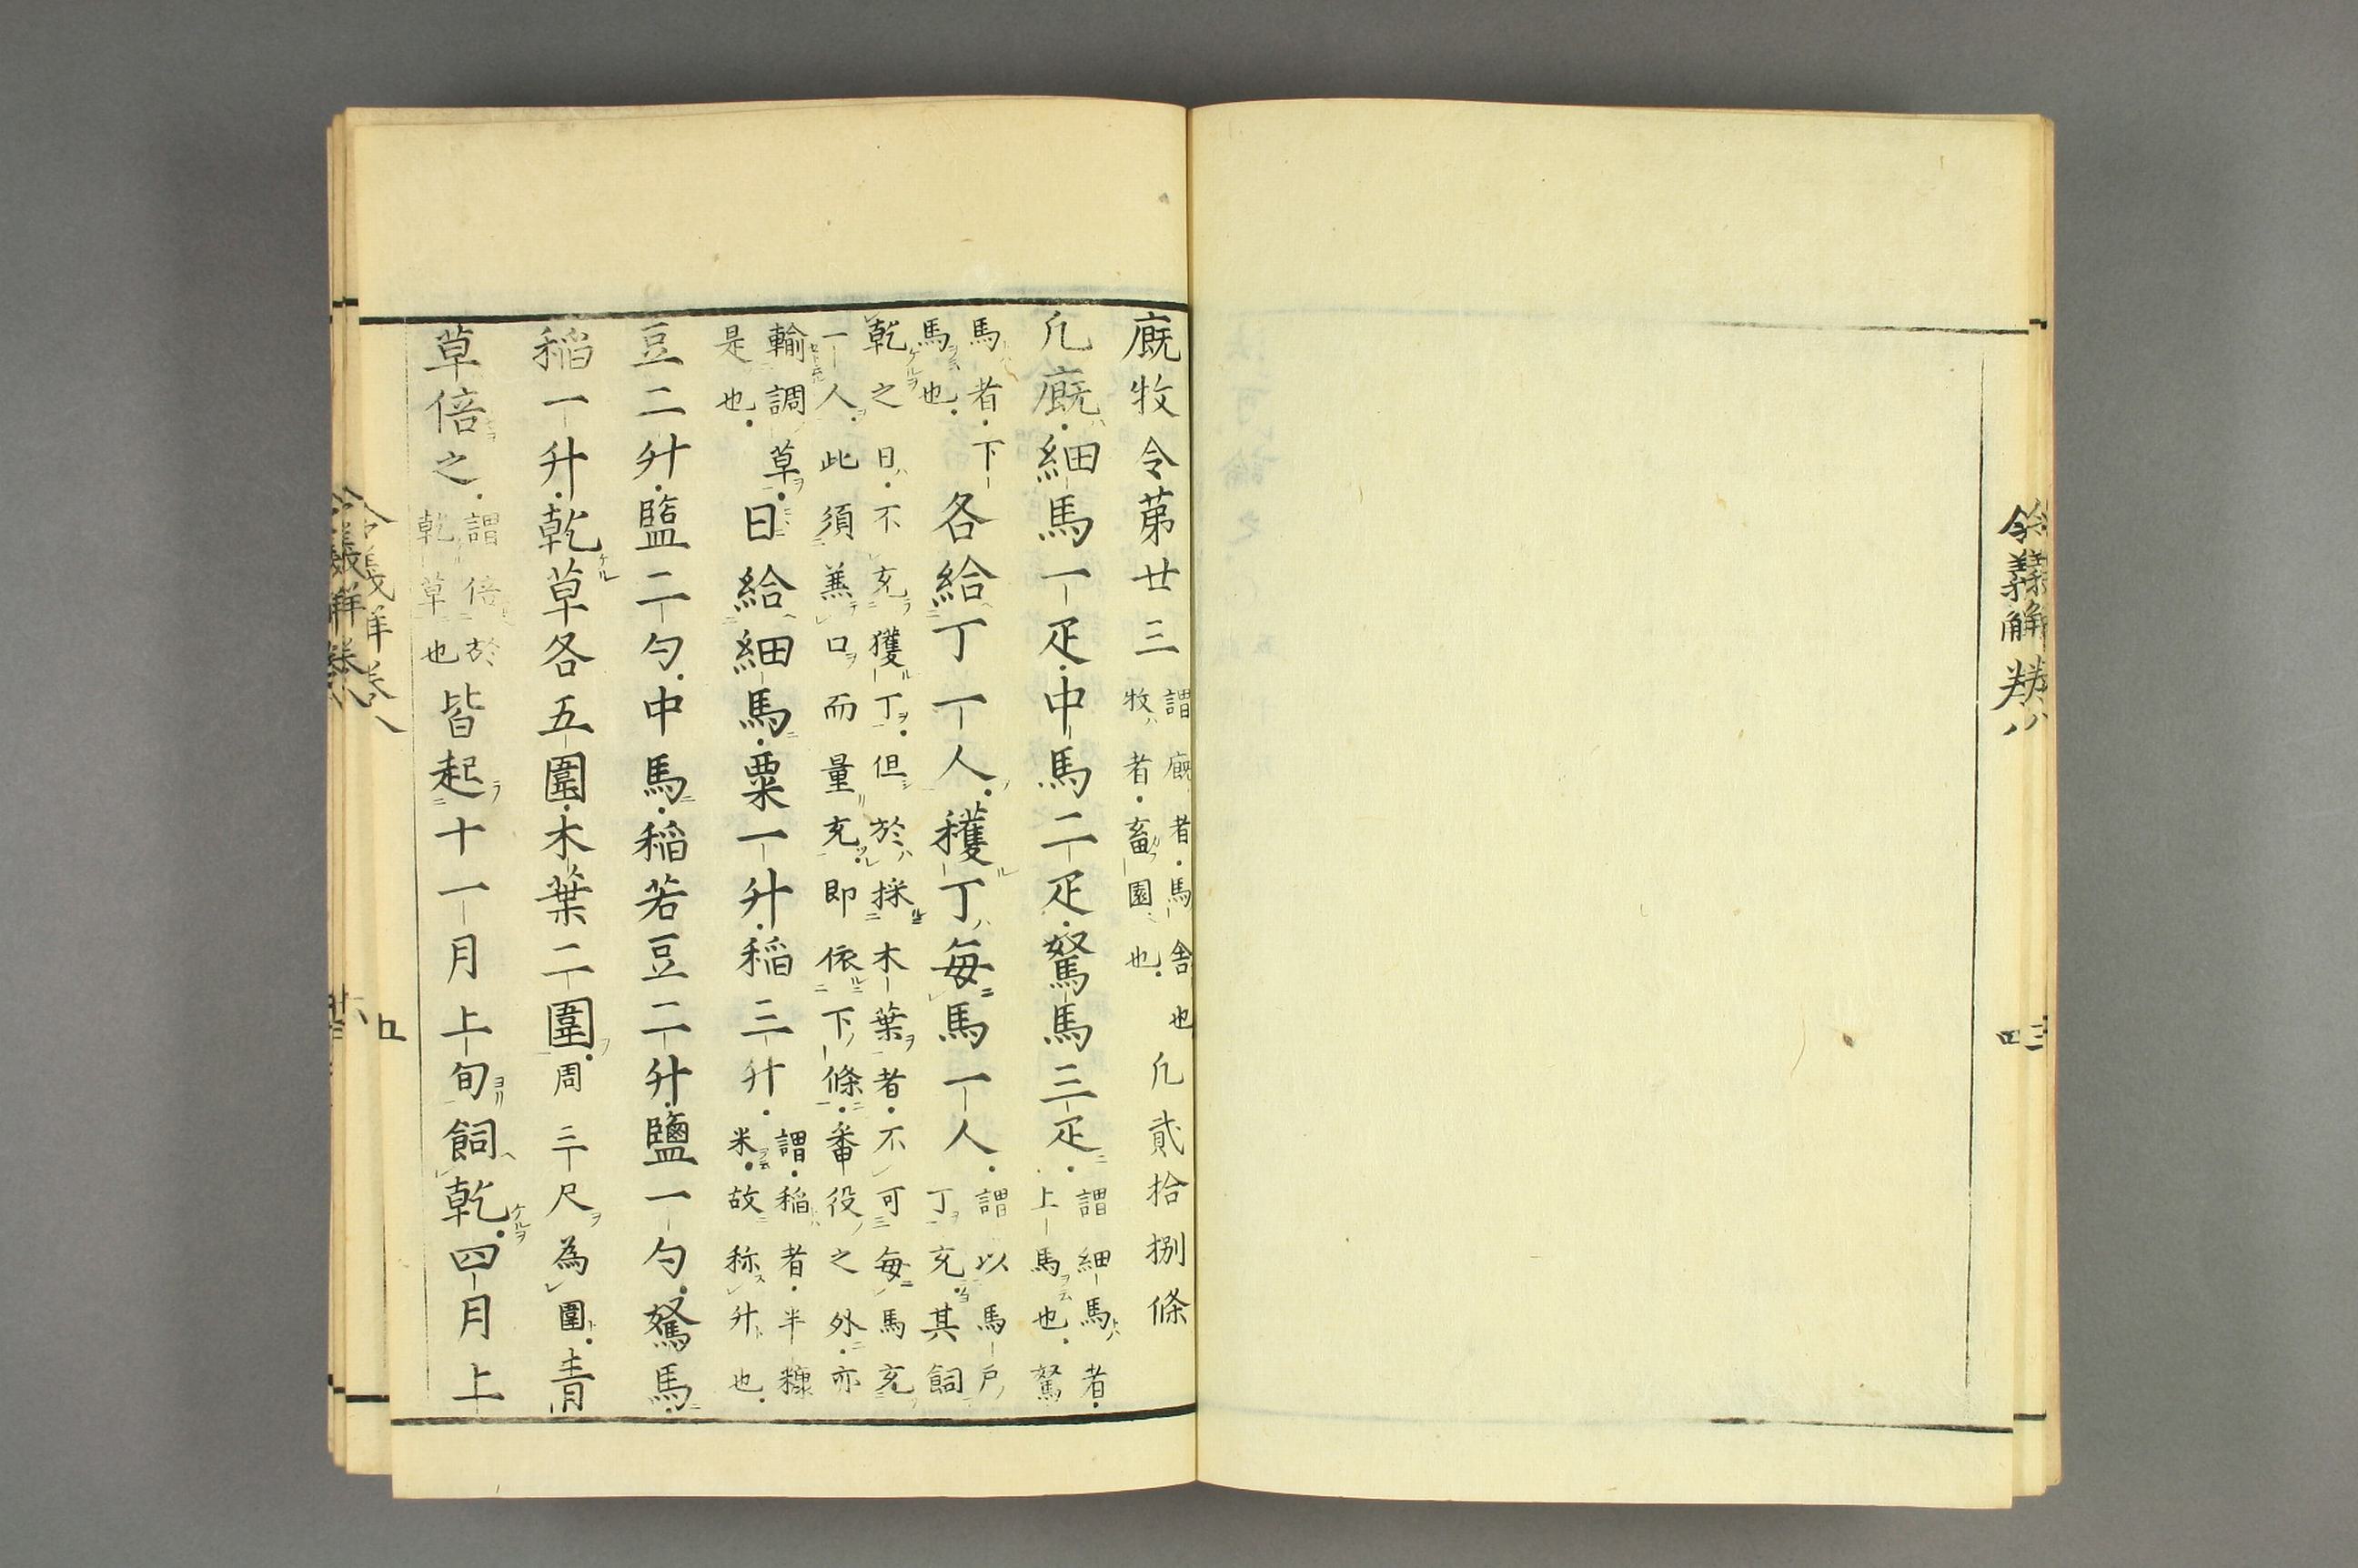 廐牧令第廿三 謂廐者馬舎也
牧者畜園也 凡貳拾捌條
凡廐細馬一疋中馬二疋駑馬三疋 謂細馬者
上馬也駑
馬者下
馬也 各給丁一人穫丁毎馬一人 謂以馬戸
丁充其飼
乾之日不充獲丁但於採木葉者不可毎馬充
一人此須兼口而量充即依下條番役之外亦
輸調草
是也 日給細馬粟一升稲三升 謂稲者半糠
米故称升也
豆二升鹽二勺中馬稲若豆二升鹽一勺駑馬
稲一升乾草各五圍木葉二圍 周三尺為圍 青
草倍之 謂倍於
乾草也 皆起十一月上旬飼乾四月上
令義解卷八